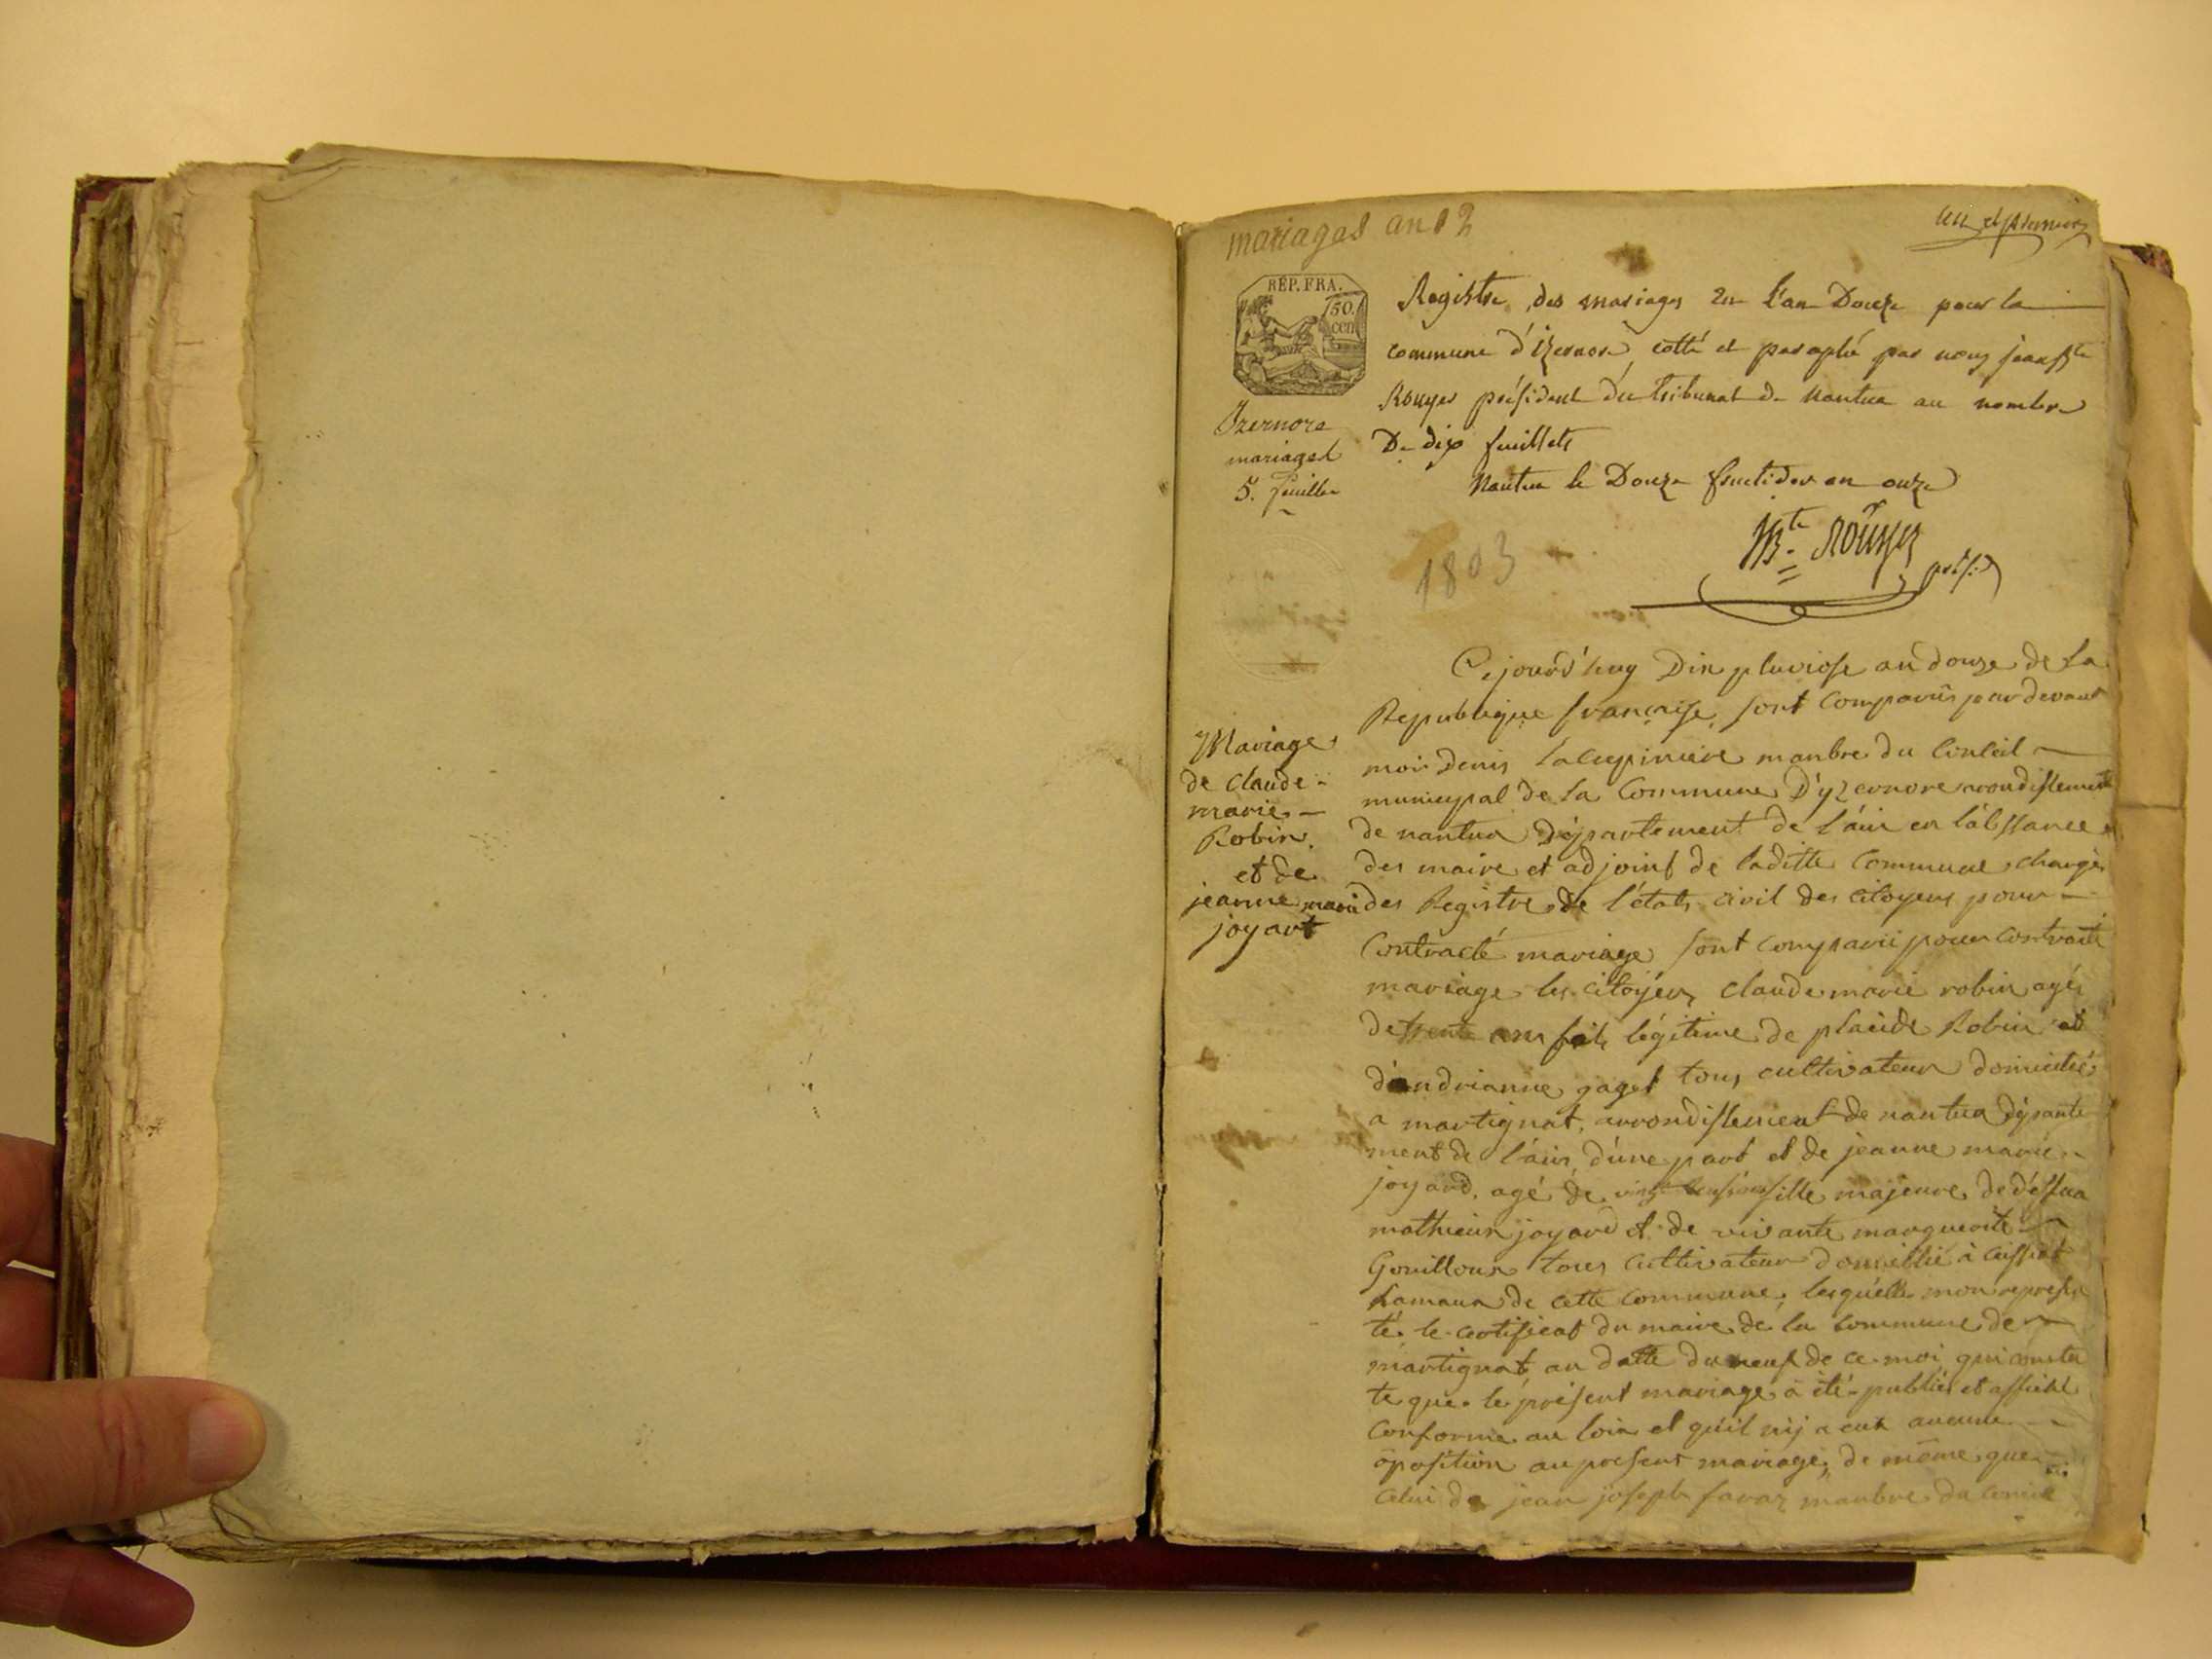 mariages an 12
un et premier
REP. FRA.
50.
cen
Registre des mariages en l'an Douze pour la
commune d'izernore cotté et paraphé par nous jean Bte
Rouyer président du tribunal de Nantua au nombre
De dix feuillets
Nantua le Douze fructidor an onze
Izernore
mariages
5. feuilles
JBte. Roüyer
présid
1803
Cejourd'huy Dix pluviose an douze de la
Republique française, sont comparûs pardevant
moi Denis lacepiniere manbre du Conseil
municypal de la Commune D'yzernore arondissement
de nantua Département de l'ain en l'abssance
des maire et adjoint de laditte Commune chargés
des Registre de l'état civil des citoyens pour
Contracté mariage sont comparü pour contracté
mariage les citoÿen, claude marie robin agé
de trente ans fils légitime de placide Robin et
d'andrianne gaget tous cultivateur domicilié
a martignat, arrondissement de nantua départe
ment de l'ain, d'une part et de jeanne marie
joyard, agé de vingt fille majeure de déffun
mathieu joyard et de vivante marguerite
Gouilloux tous cultivateur domicilié à ceissiat
hamaux de cette commune, lesquelle mon represen
té le certificat du maire de la commune de
martignat, au datte du neuf de ce moi, qui consta
te que le présent mariage à été publié et affiché
Conforme au loix et qu'il nij a eut aucune
oposition au present mariage, de même que
celui de jean joseph favaz manbre du conseil
Mariage
de claude-
marie
Robin.
et de
jeanne marie
joyart